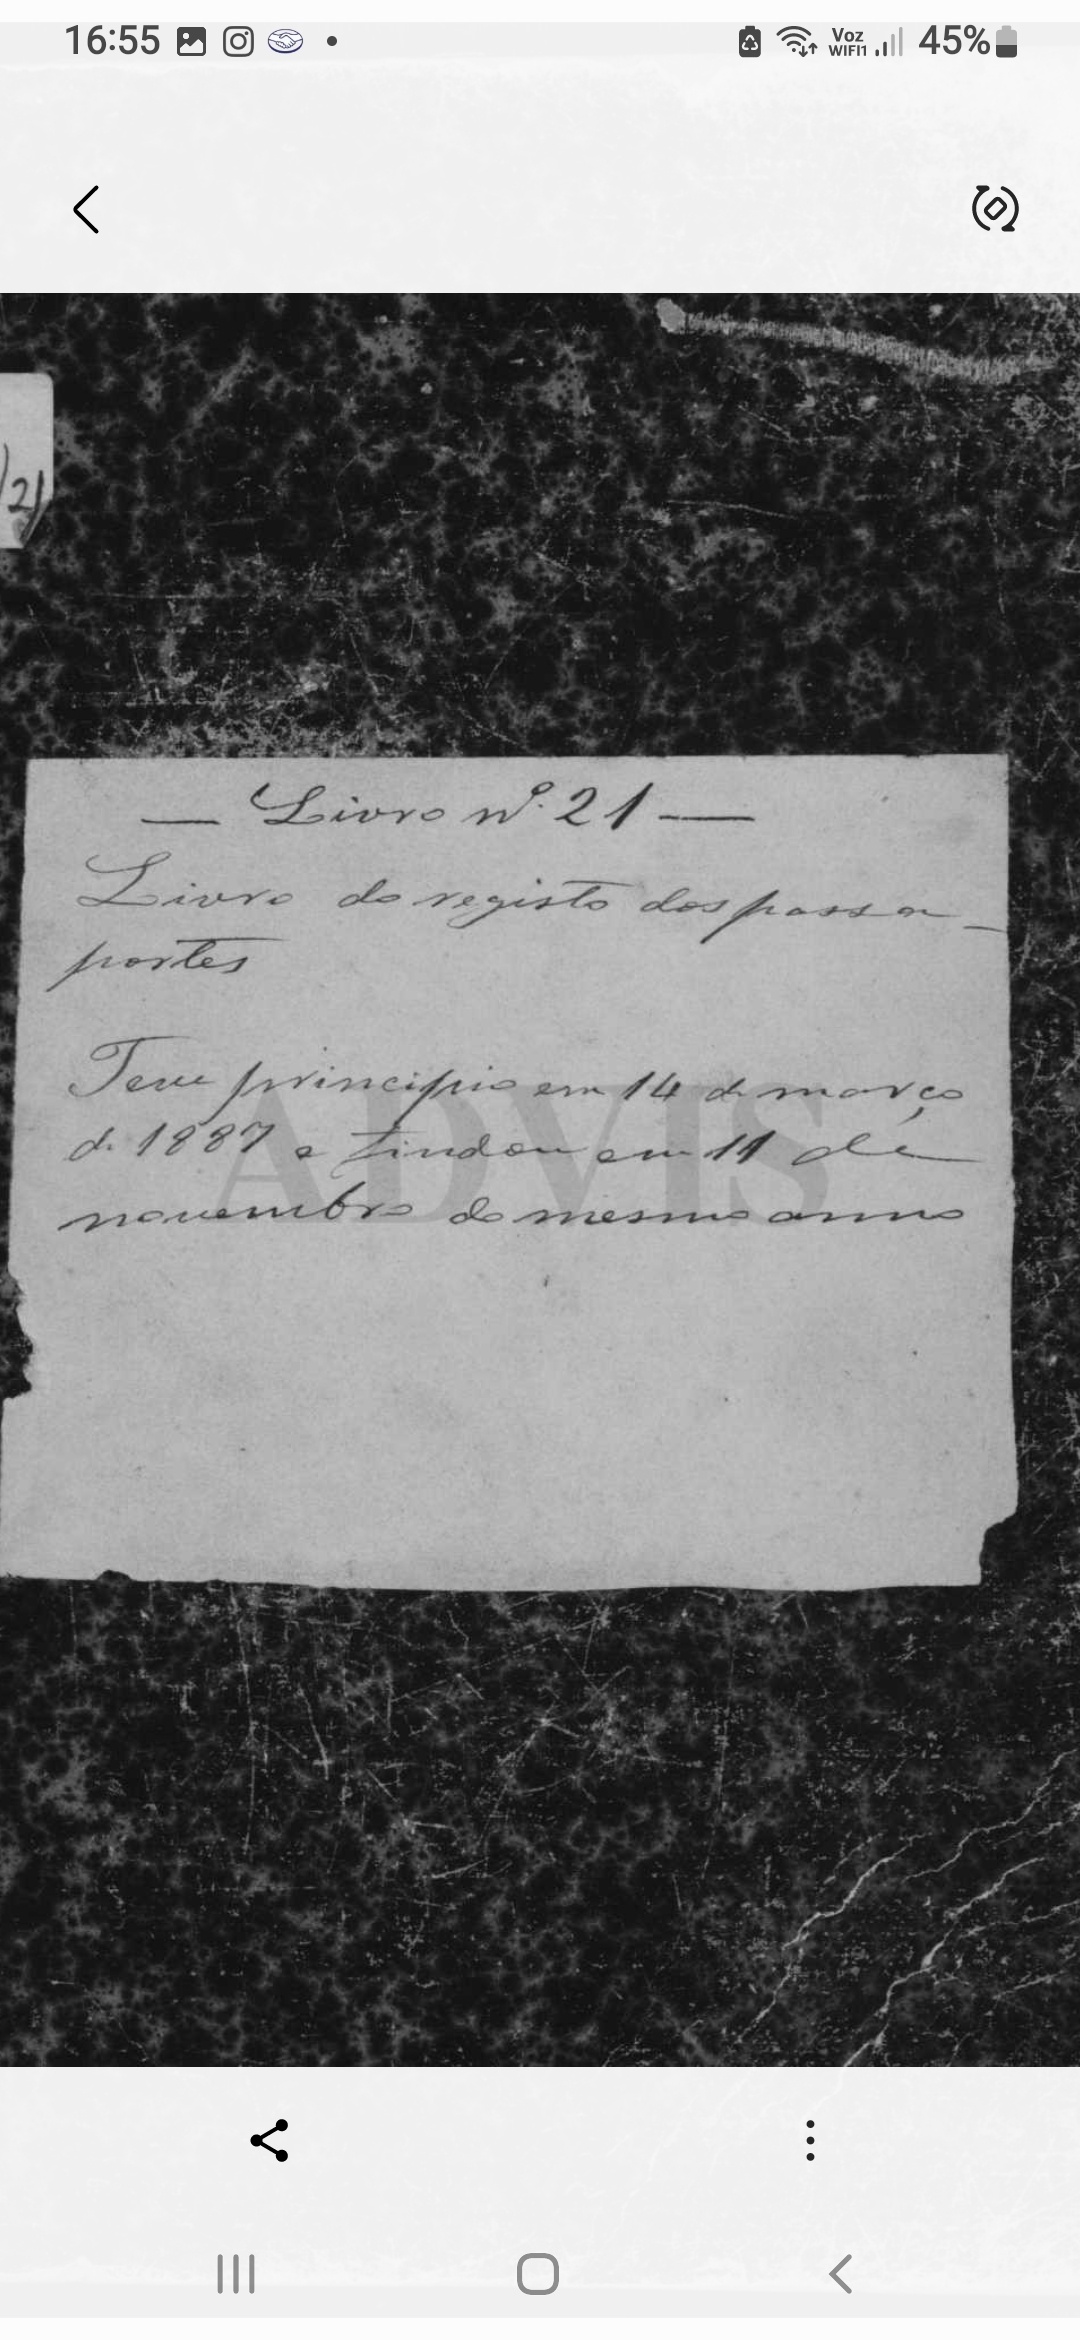 16:55
Voz
WIFI1
45%
/21
— Livro nº. 21 —
Livro do registo dos passa-
portes
Teve principio em 14 de março
de 1887 e findou em 11 de
novembro do mesmo anno
ADVIS